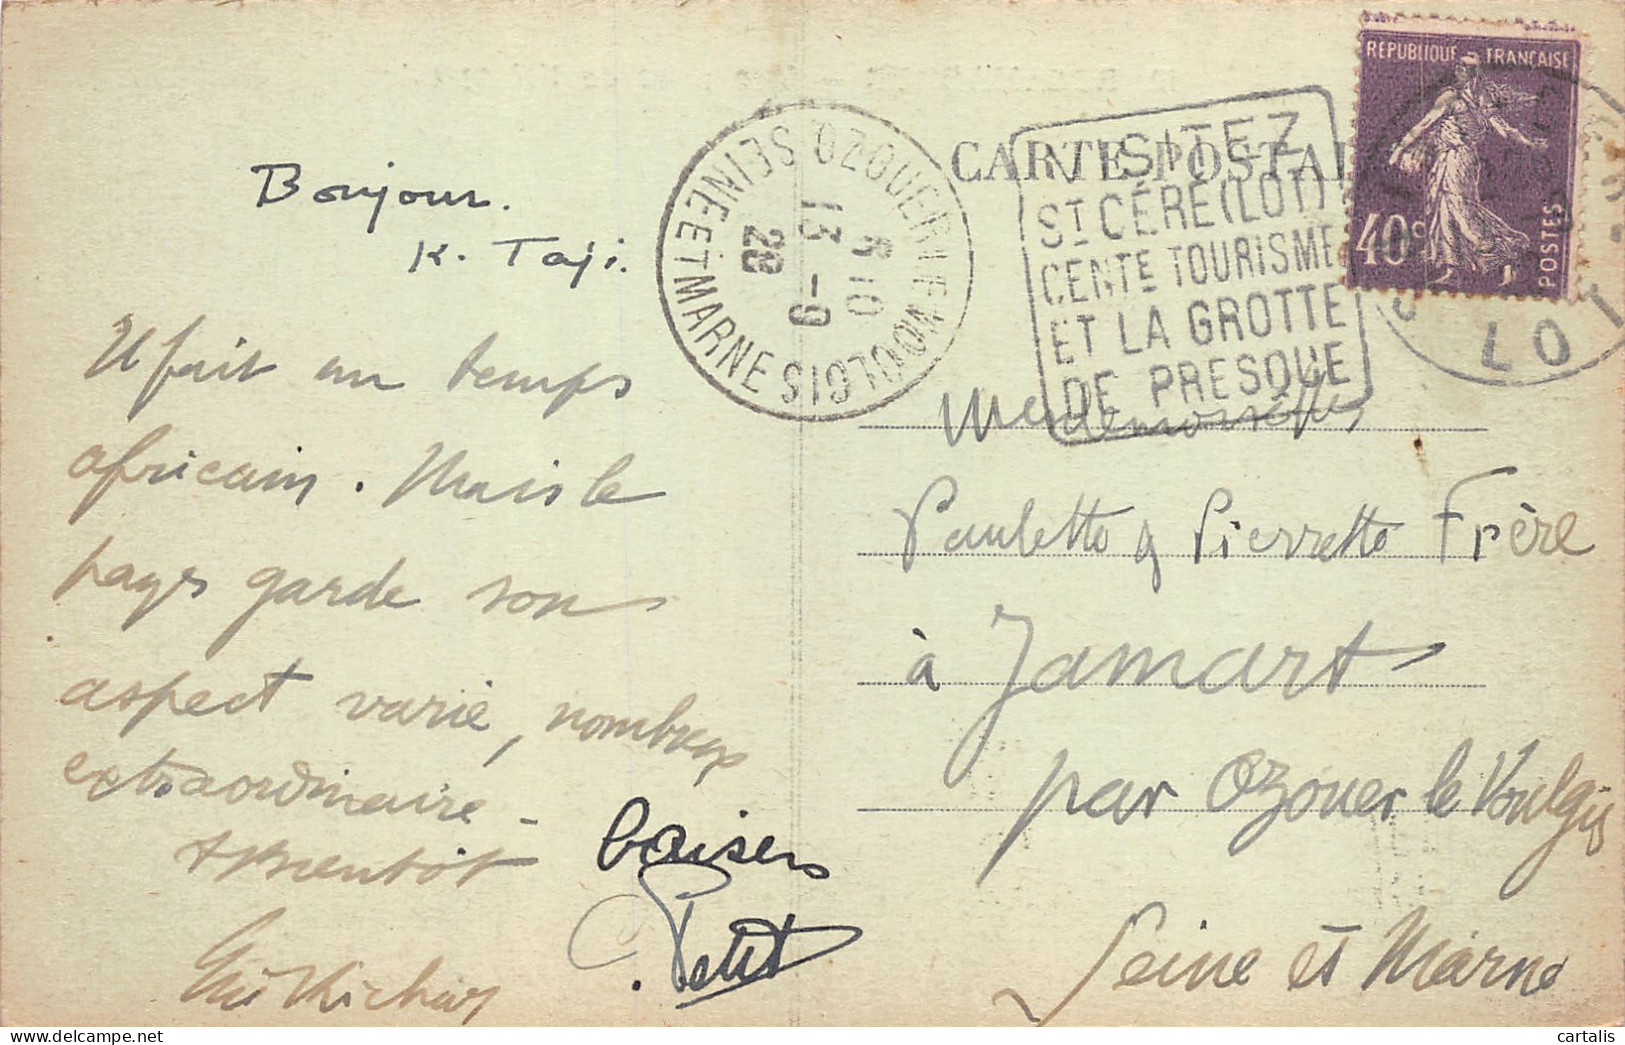 Bonjour.
K. Taji.
Il fait un temps
africain. Mais le
pays garde son
aspect varié, nombreux
extraordinaire -
A Bientôt
baisers
Petit
OZOUER-LE-VOULGIS
SEINE ET MARNE
8 10
13 - 9
28
CARTE POSTALE
VISITEZ
ST CÉRÉ (LOT)
CENTE TOURISME
ET LA GROTTE
DE PRESQUE
REPUBLIQUE FRANÇAISE
40c
POSTES
LOT
Mesdemoiselles
Paulette & Pierrette Frère
à Jamart
par Ozouer le Voulgis
Seine et Marne
cartalis